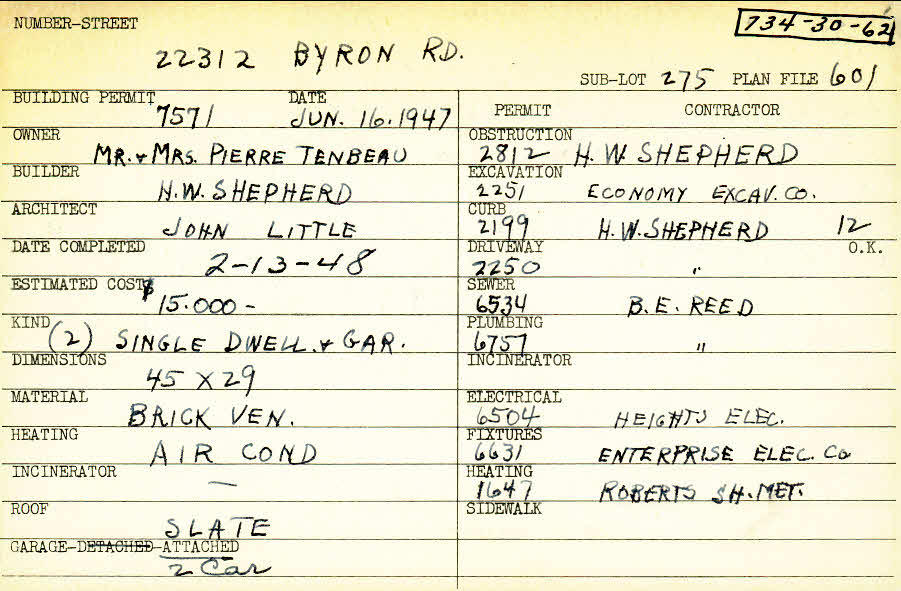 NUMBER-STREET
734-30-62
22312 BYRON RD.
SUB-LOT 275 PLAN FILE 601
BUILDING PERMIT 7571 DATE JUN. 16.1947
OWNER
MR. & MRS. PIERRE TENBEAU
BUILDER
H.W. SHEPHERD
ARCHITECT
JOHN LITTLE
DATE COMPLETED
2-13-48
ESTIMATED COST $
15.000-
KIND
(2) SINGLE DWELL. & GAR.
DIMENSIONS
45 X 29
MATERIAL
BRICK VEN.
HEATING
AIR COND
INCINERATOR
—
ROOF
SLATE
GARAGE-DETACHED-ATTACHED
2 Car
PERMIT CONTRACTOR
OBSTRUCTION
2812 H.W. SHEPHERD
EXCAVATION
2251 ECONOMY EXCAV. CO.
CURB
2199 H.W. SHEPHERD 12
DRIVEWAY O.K.
2250 "
SEWER
6534 B.E. REED
PLUMBING
6757 "
INCINERATOR
ELECTRICAL
6504 HEIGHTS ELEC.
FIXTURES
6631 ENTERPRISE ELEC. Co
HEATING
1647 ROBERTS SH. MET.
SIDEWALK